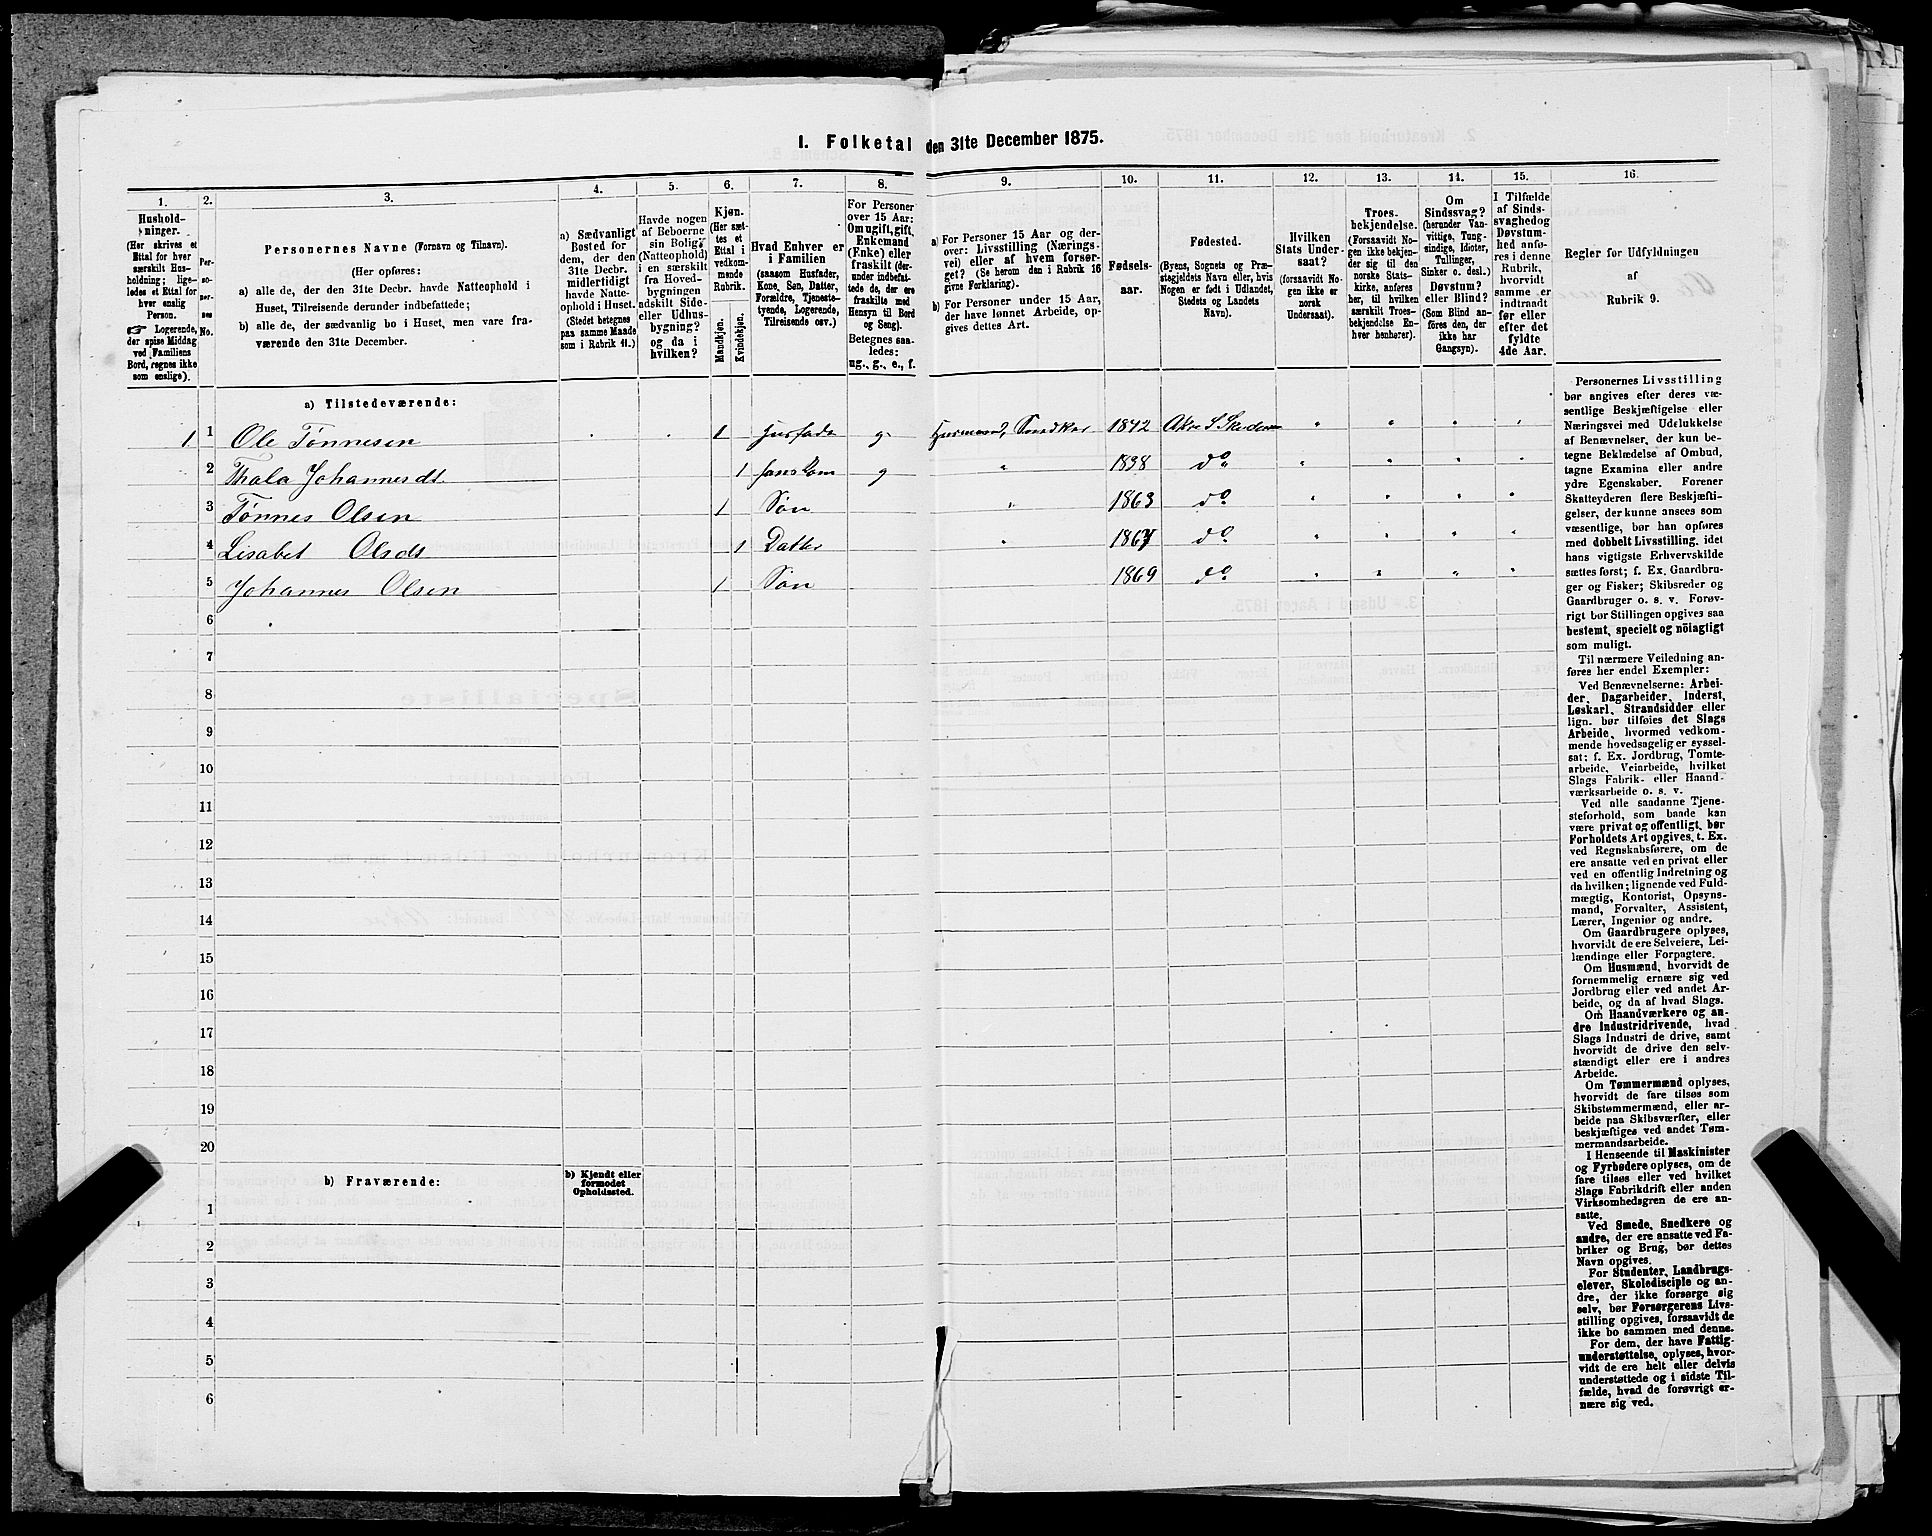 1. Folketal den 31te December 1875.
1. 2. 3. 4. 5. 6. 7. 8. 9. 10. 11. 12. 13. 14. 15. 16.
Hushold-
ninger.
(Her skrives et
Ettal for hver
særskilt Hus-
holdning; lige-
ledes et Ettal for
hver enslig
Person.
☞ Logerende,
der spise Middag
ved Familiens
Bord, regnes ikke
som enslige).
Per-
so-
ner-
nes
No.
Personernes Navne (Fornavn og Tilnavn).
(Her opføres:
a) alle de, der den 31te Decbr. havde Natteophold i
Huset, Tilreisende derunder indbefattede;
b) alle de, der sædvanlig bo i Huset, men vare fra-
værende den 31te December.
a) Sædvanligt
Bosted for
dem, der den
31te Decbr.
midlertidigt
havde Natte-
ophold i Huset.
(Stedet betegnes
paa samme Maade
som i Rubrik 11.)
Havde nogen
af Beboerne
sin Bolig
(Natteophold)
i en særskilt
fra Hoved-
bygningen
adskilt Side-
eller Udhus-
bygning?
og da i
hvilken?
Kjøn.
(Her sæt-
tes et
Ettal i
vedkom-
mende
Rubrik.
Mandkjøn.
Kvindekjøn.
Hvad Enhver er
i Familien
(saasom Husfader,
Kone, Søn, Datter,
Forældre, Tjeneste-
tyende, Logerende,
Tilreisende osv.)
For Personer
over 15 Aar:
Om ugift, gift,
Enkemand
(Enke) eller
fraskilt (der-
under indbefat-
tede de, der ere
fraskilte med
Hensyn til Bord
og Seng).
Betegnes saa-
ledes:
ug., g., e., f.
a) For Personer 15 Aar og der-
over: Livsstilling (Nærings-
vei) eller af hvem forsør-
get? (Se herom den i Rubrik 16
givne Forklaring).
b) For Personer under 15 Aar,
der have lønnet Arbeide, op-
gives dettes Art.
Fødsels-
aar.
Fødested.
(Byens, Sognets og Præ-
stegjeldets Navn eller, hvis
Nogen er født i Udlandet,
Stedets og Landets
Navn).
Hvilken
Stats Under-
saat?
(forsaavidt No-
gen ikke er
norsk
Undersaat).
Troes-
bekjendelse.
(Forsaavidt No-
gen ikke bekjen-
der sig til den
norske Stats-
kirke, anføres
her, til hvilken
særskilt Troes-
bekjendelse En-
hver henhører).
Om
Sindssvag?
(herunder Van-
vittige, Tung-
sindige, Idioter,
Tullinger,
Sinker o. desl.)
Døvstum?
eller Blind?
(Som Blind an-
føres den, der
ikke har
Gangsyn).
I Tilfælde
af Sinds-
svaghed og
Døvstum-
hed anfø-
res i denne
Rubrik,
hvorvidt
samme er
indtraadt
før eller
efter det
fyldte
4de Aar.
Regler for Udfyldningen
af
Rubrik 9.
a) Tilstedeværende:
1 1 Ole Tönnesen 1 Husfader g Husmand, Snedker 1842 " " " "
2 Johannesdt. 1 g " 1838 do " " " "
3 Tönnes Olsen 1 Sön " 1863 do " " " "
4 Lisabet Olsdt 1 Datter " 1867 do " " " "
5 Johannes Olsen 1 Sön 1869 do " " " "
6
7
8
9
10
11
12
13
14
15
16
17
18
19
20
b) Fraværende:
b) Kjendt eller
formodet
Opholdssted.
1
2
3
4
5
6
Personernes Livsstilling
bør angives efter deres væ-
sentlige Beskjæftigelse eller
Næringsvei med Udelukkelse
af Benævnelser, der kun be-
tegne Beklædelse af Ombud,
tagne Examina eller andre
ydre Egenskaber. Forener
Skatteyderen flere Beskjæfti-
gelser, der kunne ansees som
væsentlige, bør han opføres
med dobbelt Livsstilling, idet
hans vigtigste Erhvervskilde
sættes først; f. Ex. Gaardbru-
ger og Fisker; Skibsreder og
Gaardbruger o. s. v. Forøv-
rigt bør Stillingen opgives saa
bestemt, specielt og nöiagtigt
som muligt.
Til nærmere Veiledning an-
føres her endel Exempler:
Ved Benævnelserne: Arbei-
der, Dagarbeider, Inderst,
Løskarl, Strandsidder eller
lign. bør tilføies det Slags
Arbeide, hvormed vedkom-
mende hovedsagelig er syssel-
sat; f. Ex. Jordbrug, Tomte-
arbeide, Veiarbeide, hvilket
Slags Fabrik- eller Haand-
værksarbeide o. s. v.
Ved alle saadanne Tjene-
steforhold, som baade kan
være privat og offentligt, bør
Forholdets Art opgives, t. Ex.
ved Regnskabsførere, om de
ere ansatte ved en privat eller
ved en offentlig Indretning og
da hvilken; lignende ved Fuld-
mægtig, Kontorist, Opsyns-
mand, Forvalter, Assistent,
Lærer, Ingeniør og andre.
Om Gaardbrugere oplyses,
hvorvidt de ere Selveiere, Lei-
lændinge eller Forpagtere.
Om Husmænd, hvorvidt de
fornemmelig ernære sig ved
Jordbrug eller ved andet Ar-
beide, og da af hvad Slags.
Om Haandværkere og an-
dre Industridrivende, hvad
Slags Industri de drive, samt
hvorvidt de drive den selv-
stændigt eller ere i andres
Arbeide.
Om Tømmermænd oplyses,
hvorvidt de fare tilsøs som
Skibstømmermænd, eller ar-
beide paa Skibsværfter, eller
beskjæftiges ved andet Tøm-
mermandsarbeide.
I Henseende til Maskinister
og Fyrbødere oplyses, om de
fare tilsøs eller ved hvilket
Slags Fabrikdrift eller anden
Virksomhedsgren de ere an-
satte.
Ved Smede, Snedkere og
andre, der ere ansatte ved Fa-
briker og Brug, bør dettes
Navn opgives.
For Studenter, Landbrugs-
elever, Skoledisciple og an-
dre, der ikke forsørge sig
selv, bør Forsørgerens Livs-
stilling opgives, forsaavidt de
ikke bo sammen med denne.
For dem, der have Fattig-
understøttelse, oplyses, hvor-
vidt de ere helt eller delvis
understøttede og i sidste Til-
fælde, hvad de forøvrigt er-
nære sig ved.